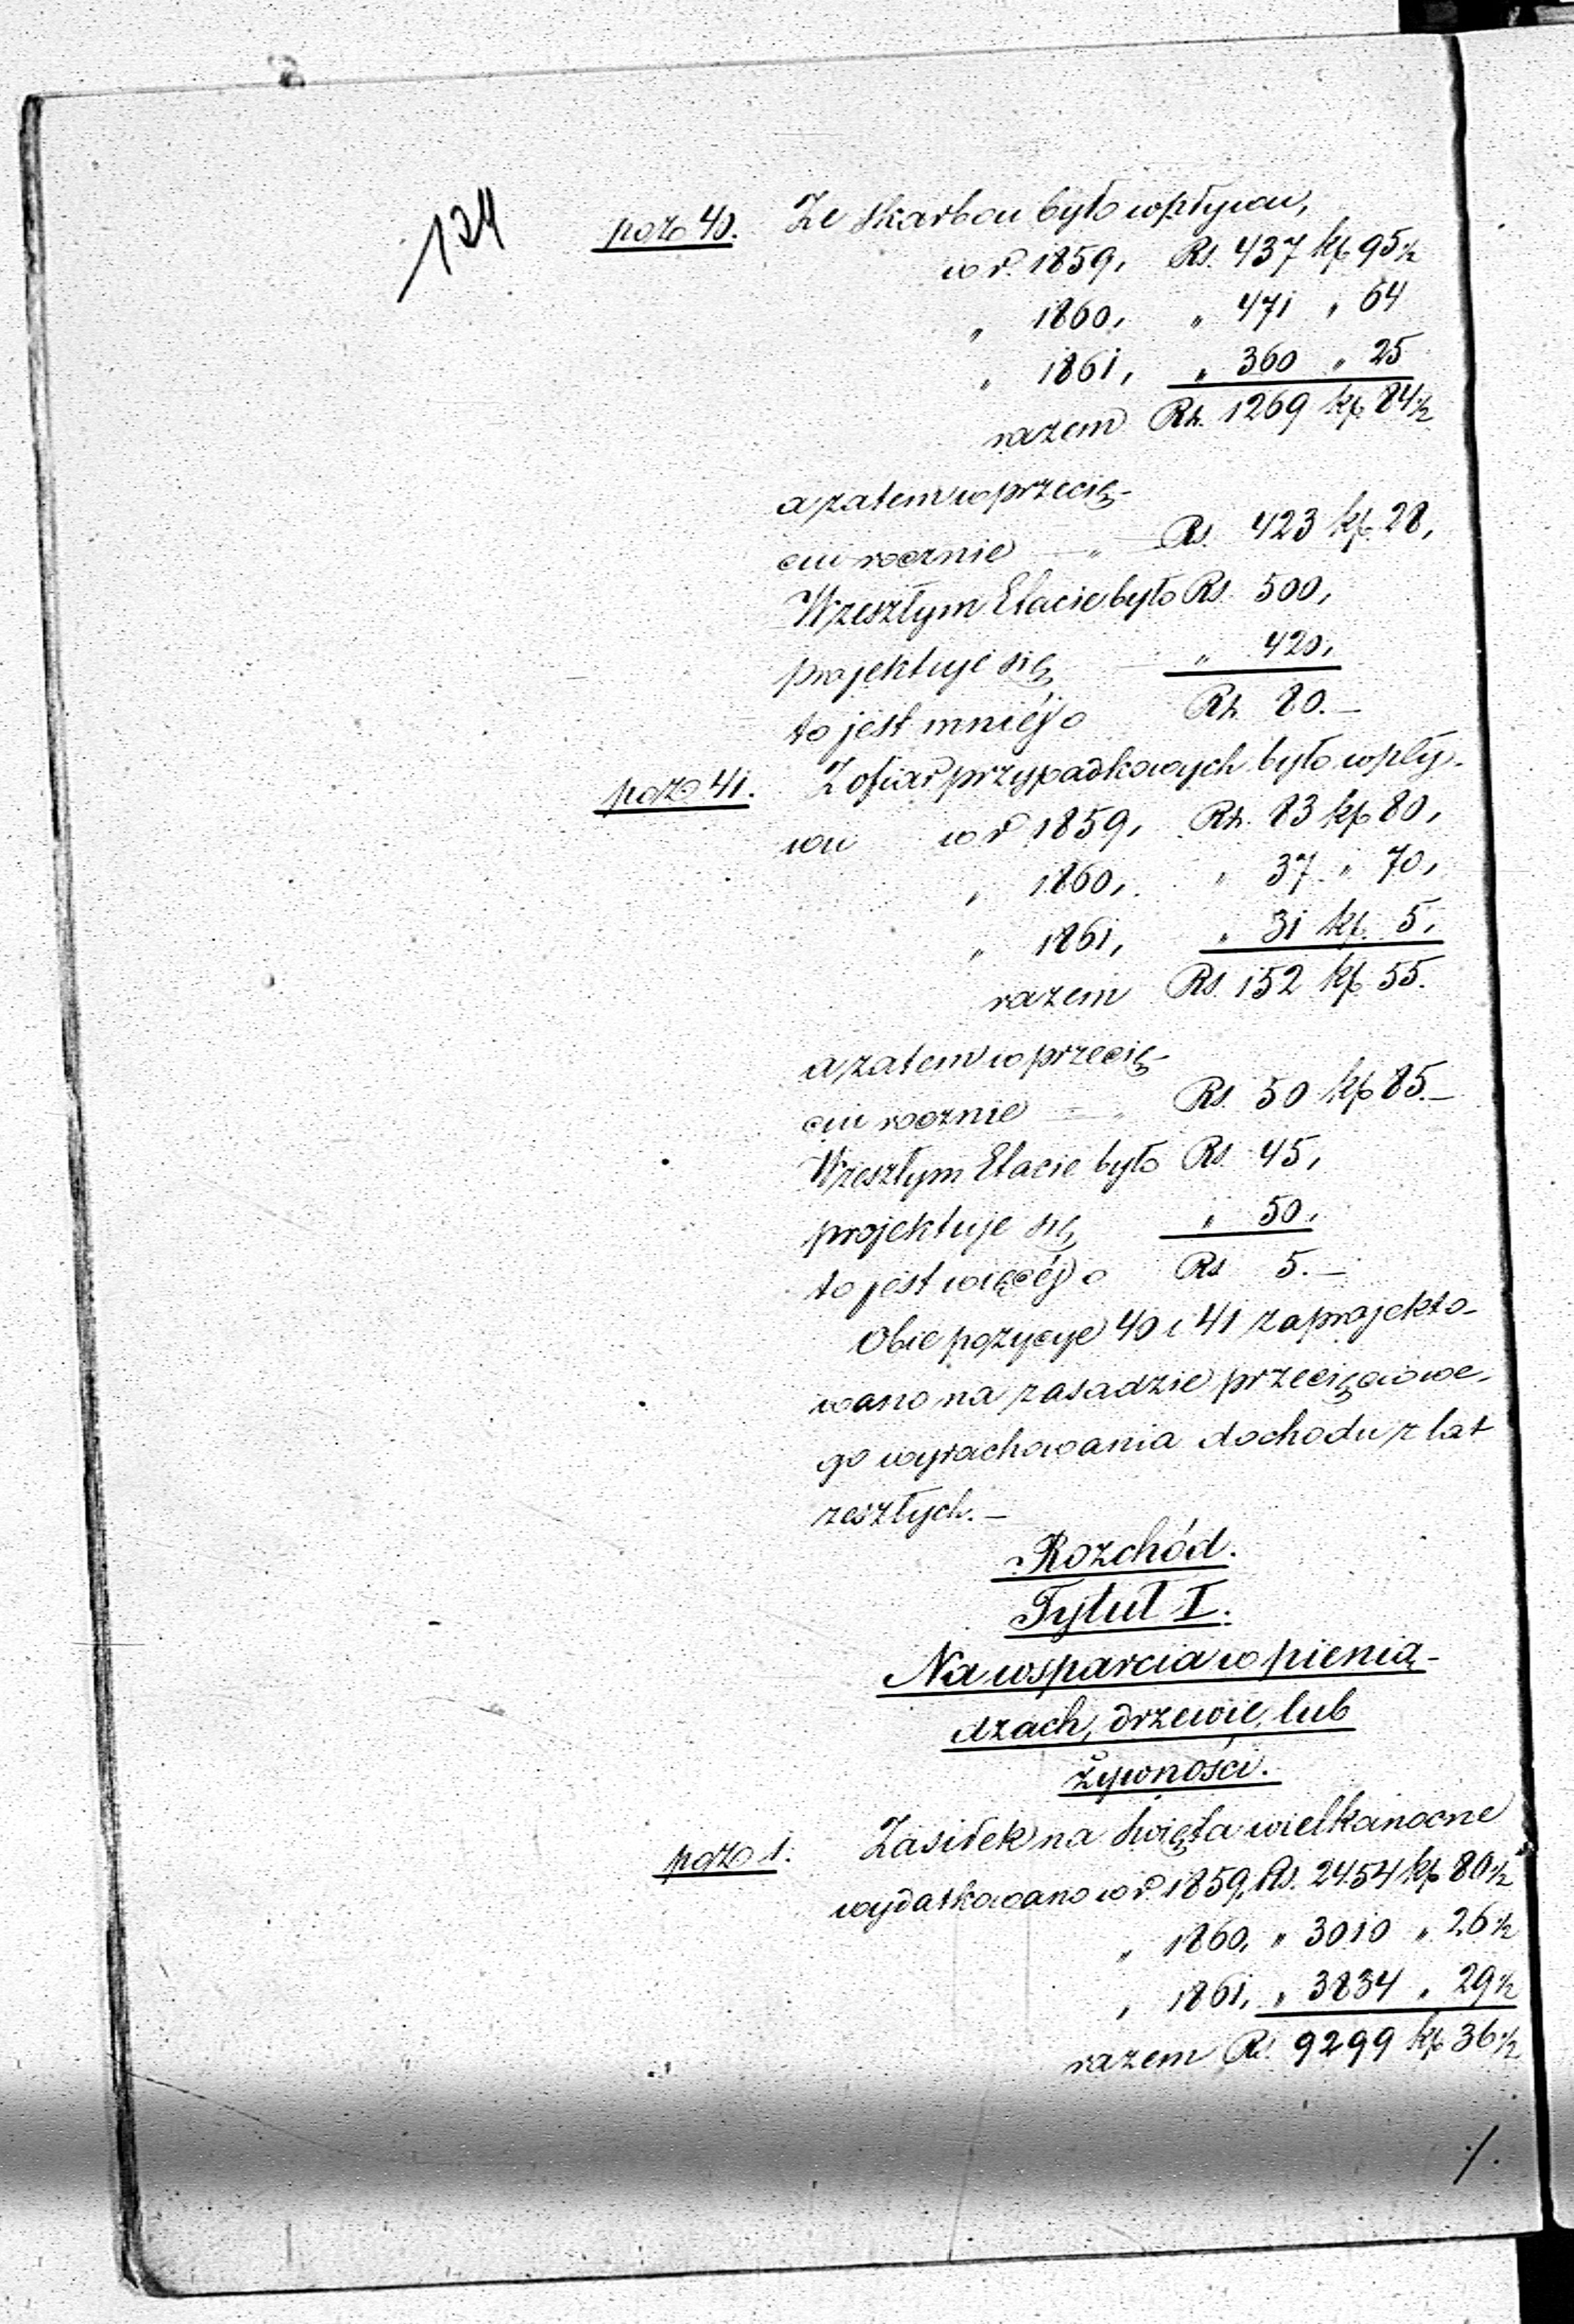 134
pozo 40. Ze skarbon było wpływu,
w r. 1859, Rs. 437 kp 95½
„ 1860, „ 471 „ 64
„ 1861, „ 360 „ 25
razem Rs. 1269 kp 84½
a zatem w przecię-
ciu rocznie „ Rs. 423 kp. 28,
W zeszłym Etacie było Rs. 500,
projektuje się „ 420,
to jest mniéj o Rs. 80.—
pozo 41. Z ofiar przypadkowych było wpły-
wu w r. 1859, Rs. 83 kp 80,
„ 1860, „ 37 „ 70,
„ 1861, „ 31 kp. 5,
razem Rs. 152 kp 55.
a zatem w przecię-
ciu rocznie „ Rs. 50 kp 85.—
W zeszłym Etacie było Rs. 45,
projektuje się „ 50,
to jest więcéj o Rs 5.—
Obie pozycye 40 i 41 zaprojekto-
wano na zasadzie przecięciowe-
go wyrachowania dochodu z lat
zeszłych.—
Rozchód.
Tytuł I.
Na wsparcia w pienią-
dzach, drzewie, lub
żywności.
pozo 1. Zasiłek na święta wielkanocne
wydatkowano w r. 1859, Rs. 2454 kp 80½
„ 1860, „ 3010 „ 26½
„ 1861, „ 3834 „ 29½
razem Rs. 9299 kp 36½
./.